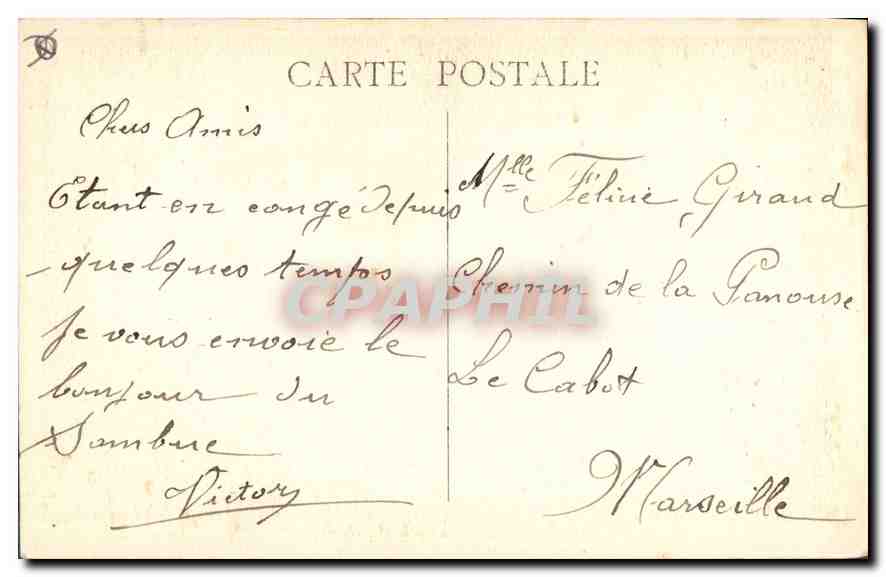 CARTE POSTALE
Chers Amis
Etant en congé depuis
quelques temps
je vous envoie le
bonjour du
Sambuc
Victor
Mlle Féline Giraud
Chemin de la Panouse
Le Cabot
Marseille
CPAPHIL